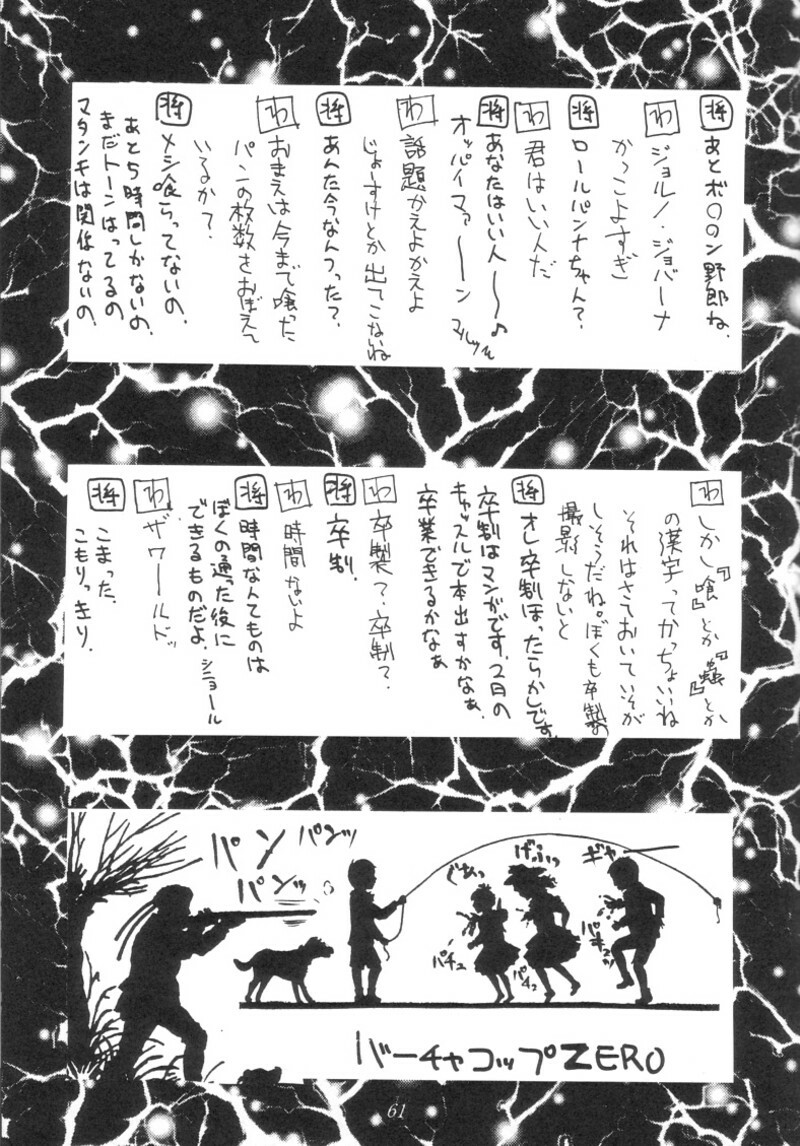 将 あとボ〇〇ン野郎ね.
わ ジョルノ・ジョバーナ
かっこよすぎ
将 ロールパンナちゃん?
わ 君はいい人だ
将 あなたはいい人〜〜♪
オッパイマァ〜〜ン
わ 話題かえよかえよ
じょーすけとか出てこないね
将 あんた今なんつった?
わ おまえは今まで喰った
パンの枚数をおぼえて
いるか?
将 メシ喰らってないの.
あと5時間しかないの.
まだトーンはってるの
マタンキは関係ないの.
わ しかし『喰』とか『蟲』とか
の漢字ってかっちょいいね
それはさておいていそが
しそうだね。ぼくも卒製の
撮影しないと
将 オレ卒制ほったらかしです.
卒制はマンがです.2日の
キャッスルで本出すかなぁ.
卒業できるかなぁ
わ 卒製?.卒制?.
将 卒制.
わ 時間ないよ
将 時間なんてものは
ぼくの通った後に
できるものだよ.シニョール
わ ザワールドッ
将 こまった.
こもりっきり.
パン パンッ
パンッ
ぐあっ
げふっ
ギャー
パチュ
パチュ
パチュッ
バーチャコップZERO
61